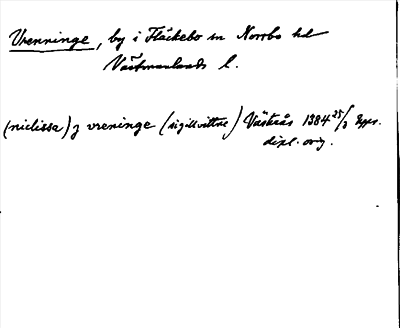 Vrenninge, by i Fläckebo sn Norrbo hd
Västmanlands l.
(niclissa) j vreninge (sigillvittne) Västerås 1384 25/3 Ups.
dipl. orig.